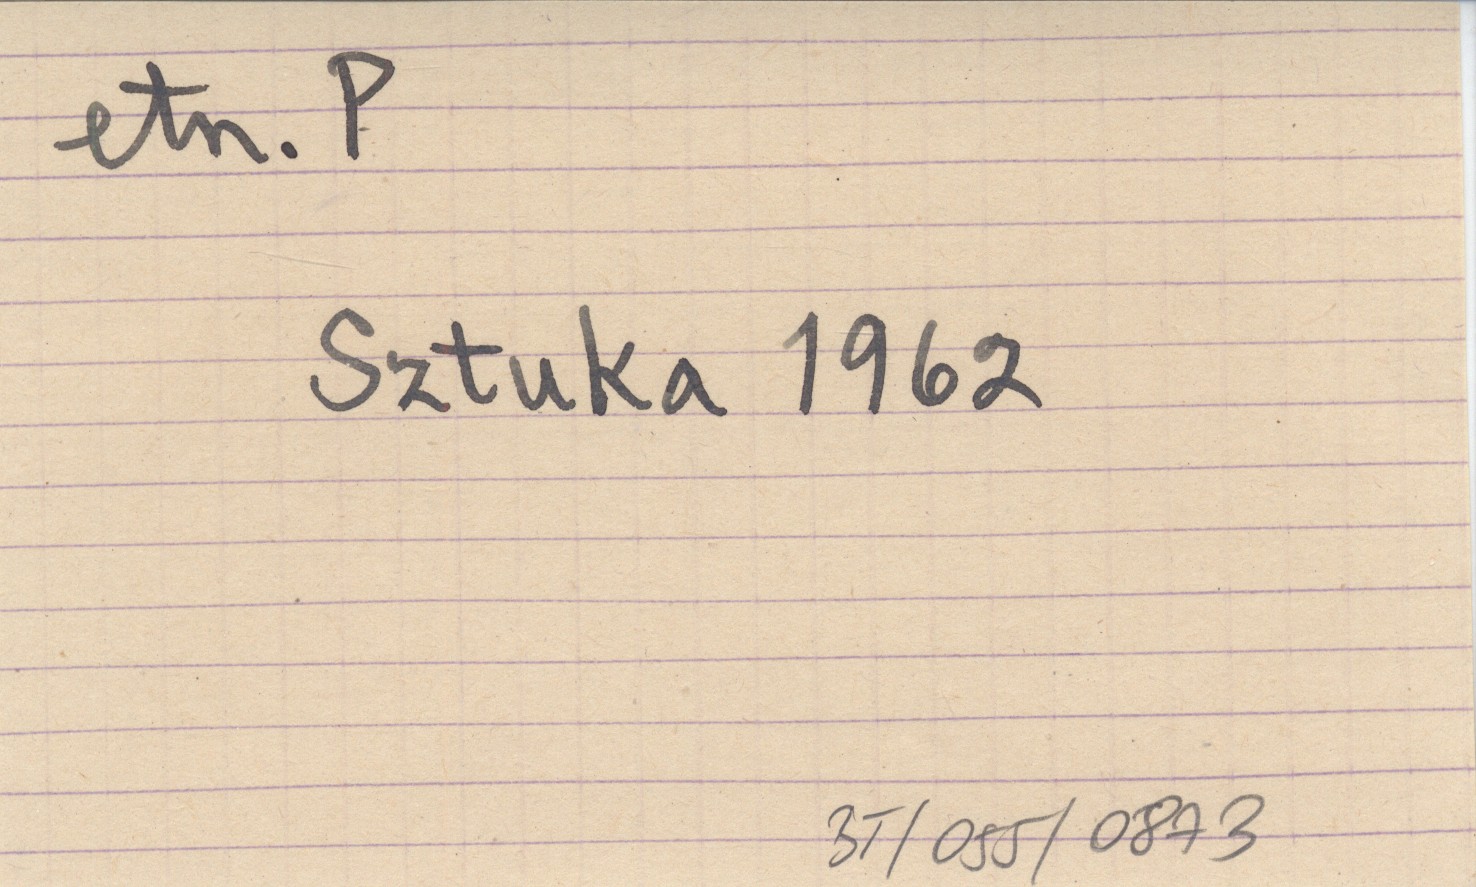 etn. P
Sztuka 1962
3T/055/0873